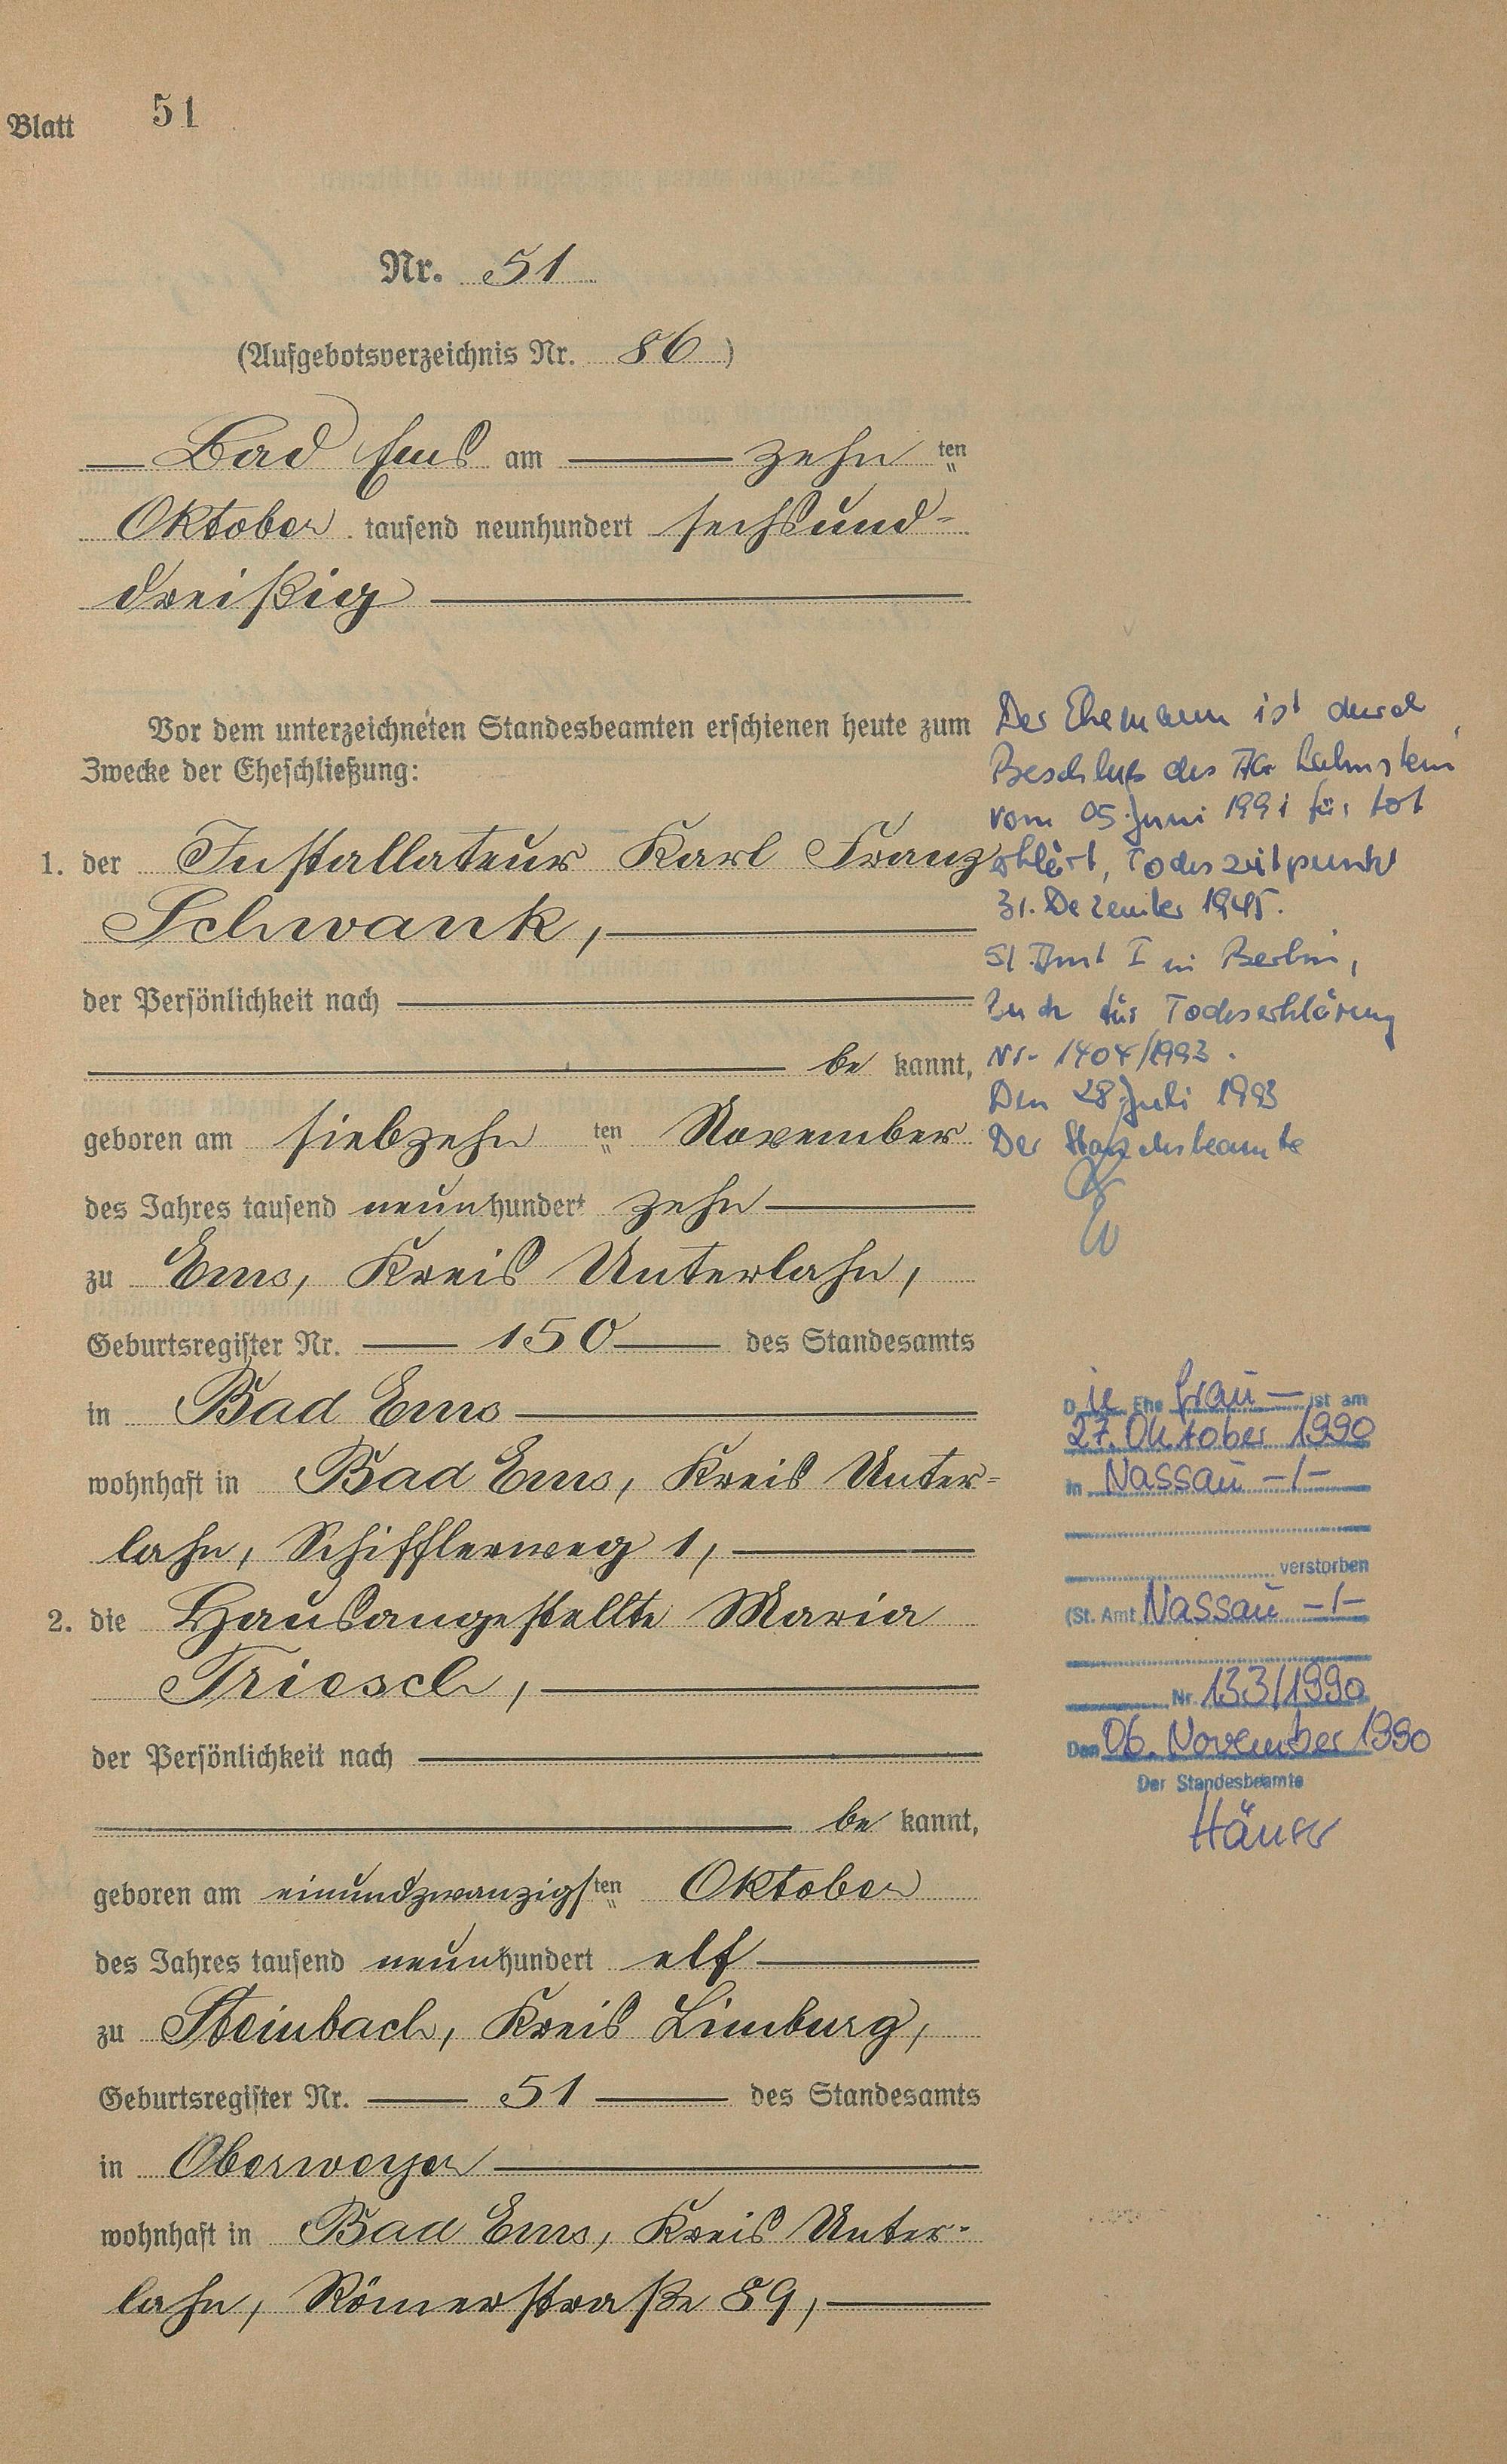 Blatt 51
Nr. 51
(Aufgebotsverzeichnis Nr. 86)
Bad Ems am zehn ten
Oktober tausend neunhundert sechsund-
dreißig
Vor dem unterzeichneten Standesbeamten erschienen heute zum
Zwecke der Eheschließung:
1. der Installateur Karl Franz
Schwank,
der Persönlichkeit nach
be kannt,
geboren am siebzehn ten November
des Jahres tausend neunhundert zehn
zu Ems, Kreis Unterlahn,
Geburtsregister Nr. 150 des Standesamts
in Bad Ems
wohnhaft in Bad Ems, Kreis Unter-
lahn, Schifflerweg 1,
2. die Hausangestellte Maria
Triesch,
der Persönlichkeit nach
be kannt,
geboren am einundzwanzigsten Oktober
des Jahres tausend neunhundert elf
zu Steinbach, Kreis Limburg,
Geburtsregister Nr. 51 des Standesamts
in Oberweyer
wohnhaft in Bad Ems, Kreis Unter-
lahn, Römerstraße 89,
Der Ehemann ist durch
Beschluß des AG Lahnstein
vom 05. Juni 1991 für tot
erklärt, Todeszeitpunkt
31. Dezember 1945.
St.Amt I in Berlin,
Buch für Todeserklärung
Nr. 1404/1993.
Den 28. Juli 1993
Der Standesbeamte
Die Ehefrau ist am
27. Oktober 1990
in Nassau -/-
verstorben
(St. Amt Nassau -/-
Nr. 133/1990
Den 06. November 1990
Der Standesbeamte
Häuser